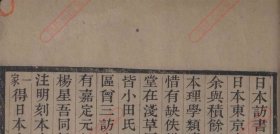 日本訪書
日本東京
余與積餘
本理學類
惜有缺佚
堂在淺草
皆小田氏
區曾三訪
有嘉定元
楊星吾同
注明刻本
一家得日本